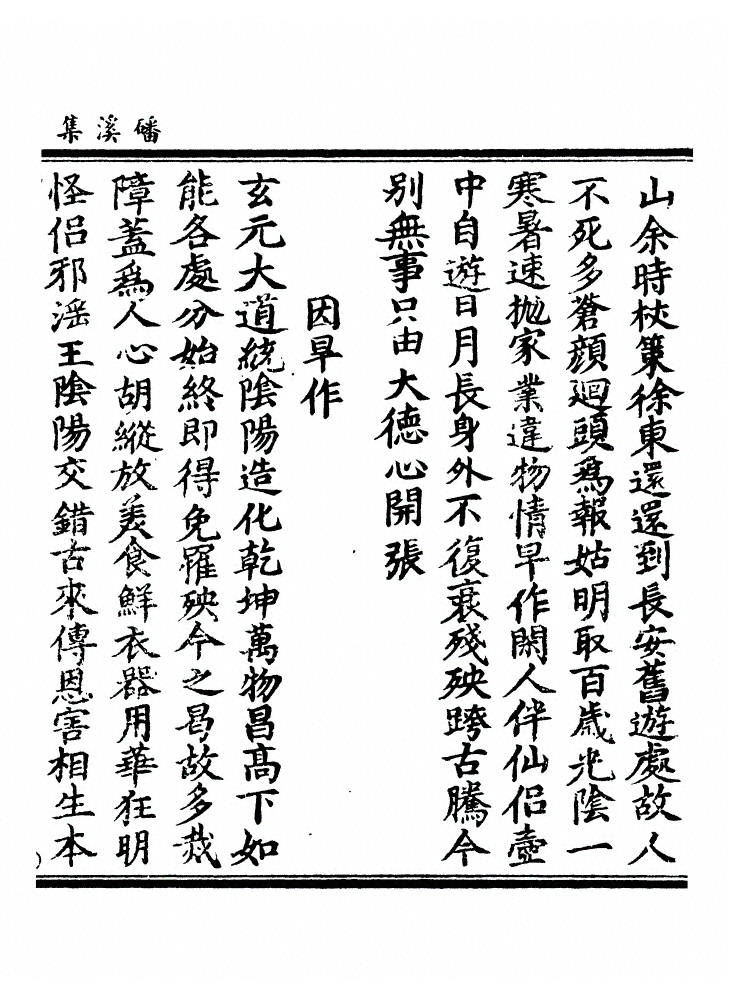 磻溪集
山余時杖策徐東還還到長安舊遊處故人
不死多蒼顔廻頭爲報姑明取百歲光陰一
寒暑速抛家業違物情早作閑人伴仙侣壺
中自遊日月長身外不復衰殘殃跨古騰今
别無事只由大德心開張
因旱作
玄元大道統陰陽造化乾坤萬物昌高下如
能各處分始終即得免罹殃今之曷故多烖
障蓋爲人心胡縱放美食鮮衣器用華狂明
怪侣邪滛王陰陽交錯古來傳恩害相生本